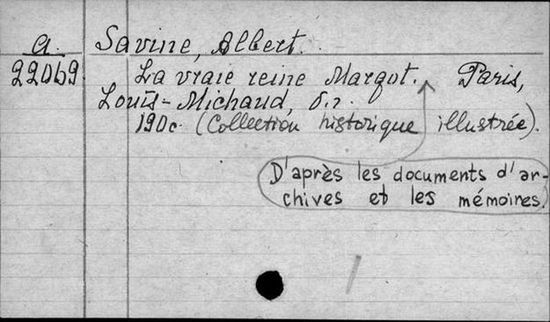 a. Savine, Albert.
22069 La vraie reine Margot. Paris,
Louis-Michaud, s.d.
190c. (Collection historique illustrée).
D'après les documents d'ar-
chives et les mémoires.